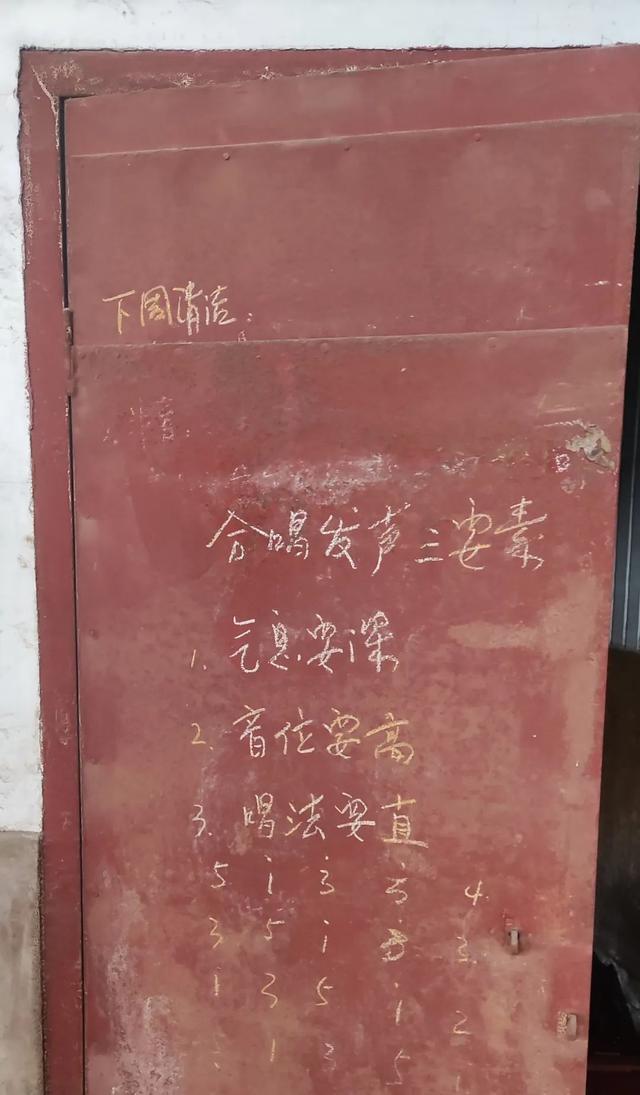 下周清洁:
合唱发声三要素
1. 气息要深
2. 音位要高
3. 唱法要直
5 i 3 5 4
3 5 i 3 3
i 3 5 i 2
1 3 5 1